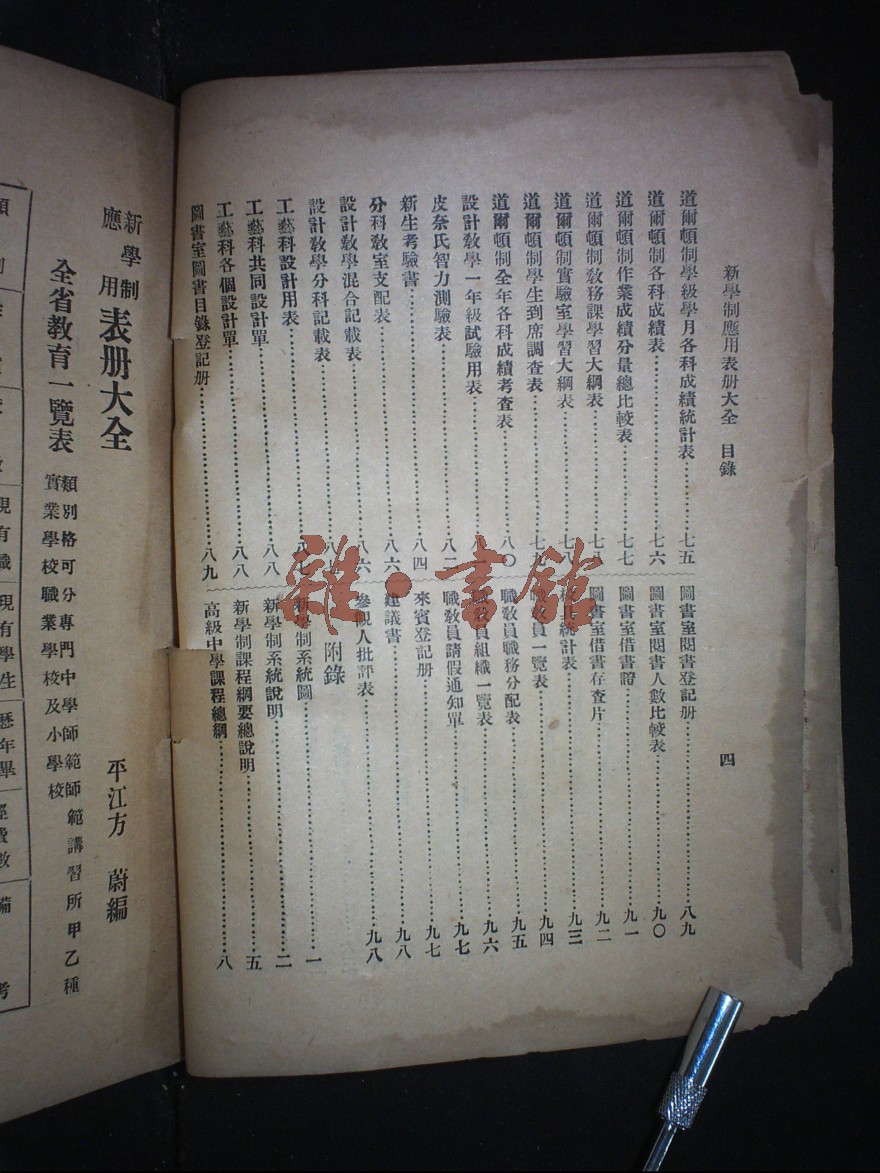 新學制應用表册大全 目錄 四
道爾頓制學級學月各科成績統計表……七五
道爾頓制各科成績表……七六
道爾頓制作業成績分量總比較表……七七
道爾頓制教務課學習大綱表……七八
道爾頓制實驗室學習大綱表……七八
道爾頓制學生到席調查表……七九
道爾頓制全年各科成績考查表……八〇
設計教學一年級試驗用表
皮奈氏智力測驗表……八二
新生考驗書……八四
分科教室支配表……八六
設計教學混合記載表……八六
設計教學分科記載表……八七
工藝科設計用表……八七
工藝科共同設計單……八八
工藝科各個設計單……八八
圖書室圖書目錄登記册……八九
圖書室閱書登記册……八九
圖書室閱書人數比較表……九〇
圖書室借書證……九一
圖書室借書存查片……九二
校具統計表……九三
職教員一覽表……九四
職教員職務分配表……九五
職教員組織一覽表……九六
職教員請假通知單……九七
來賓登記册……九七
建議書……九八
參觀人批評表……九八
附錄
新學制系統圖……一
新學制系統說明……二
新學制課程綱要總說明……五
高級中學課程總綱……八
新學制應用表册大全
平江方蔚編
全省教育一覽表
類別格可分專門中學師範師範講習所甲乙種
實業學校職業學校及小學校
現有職
現有學生
歷年畢
經費數
備考
雜·書館